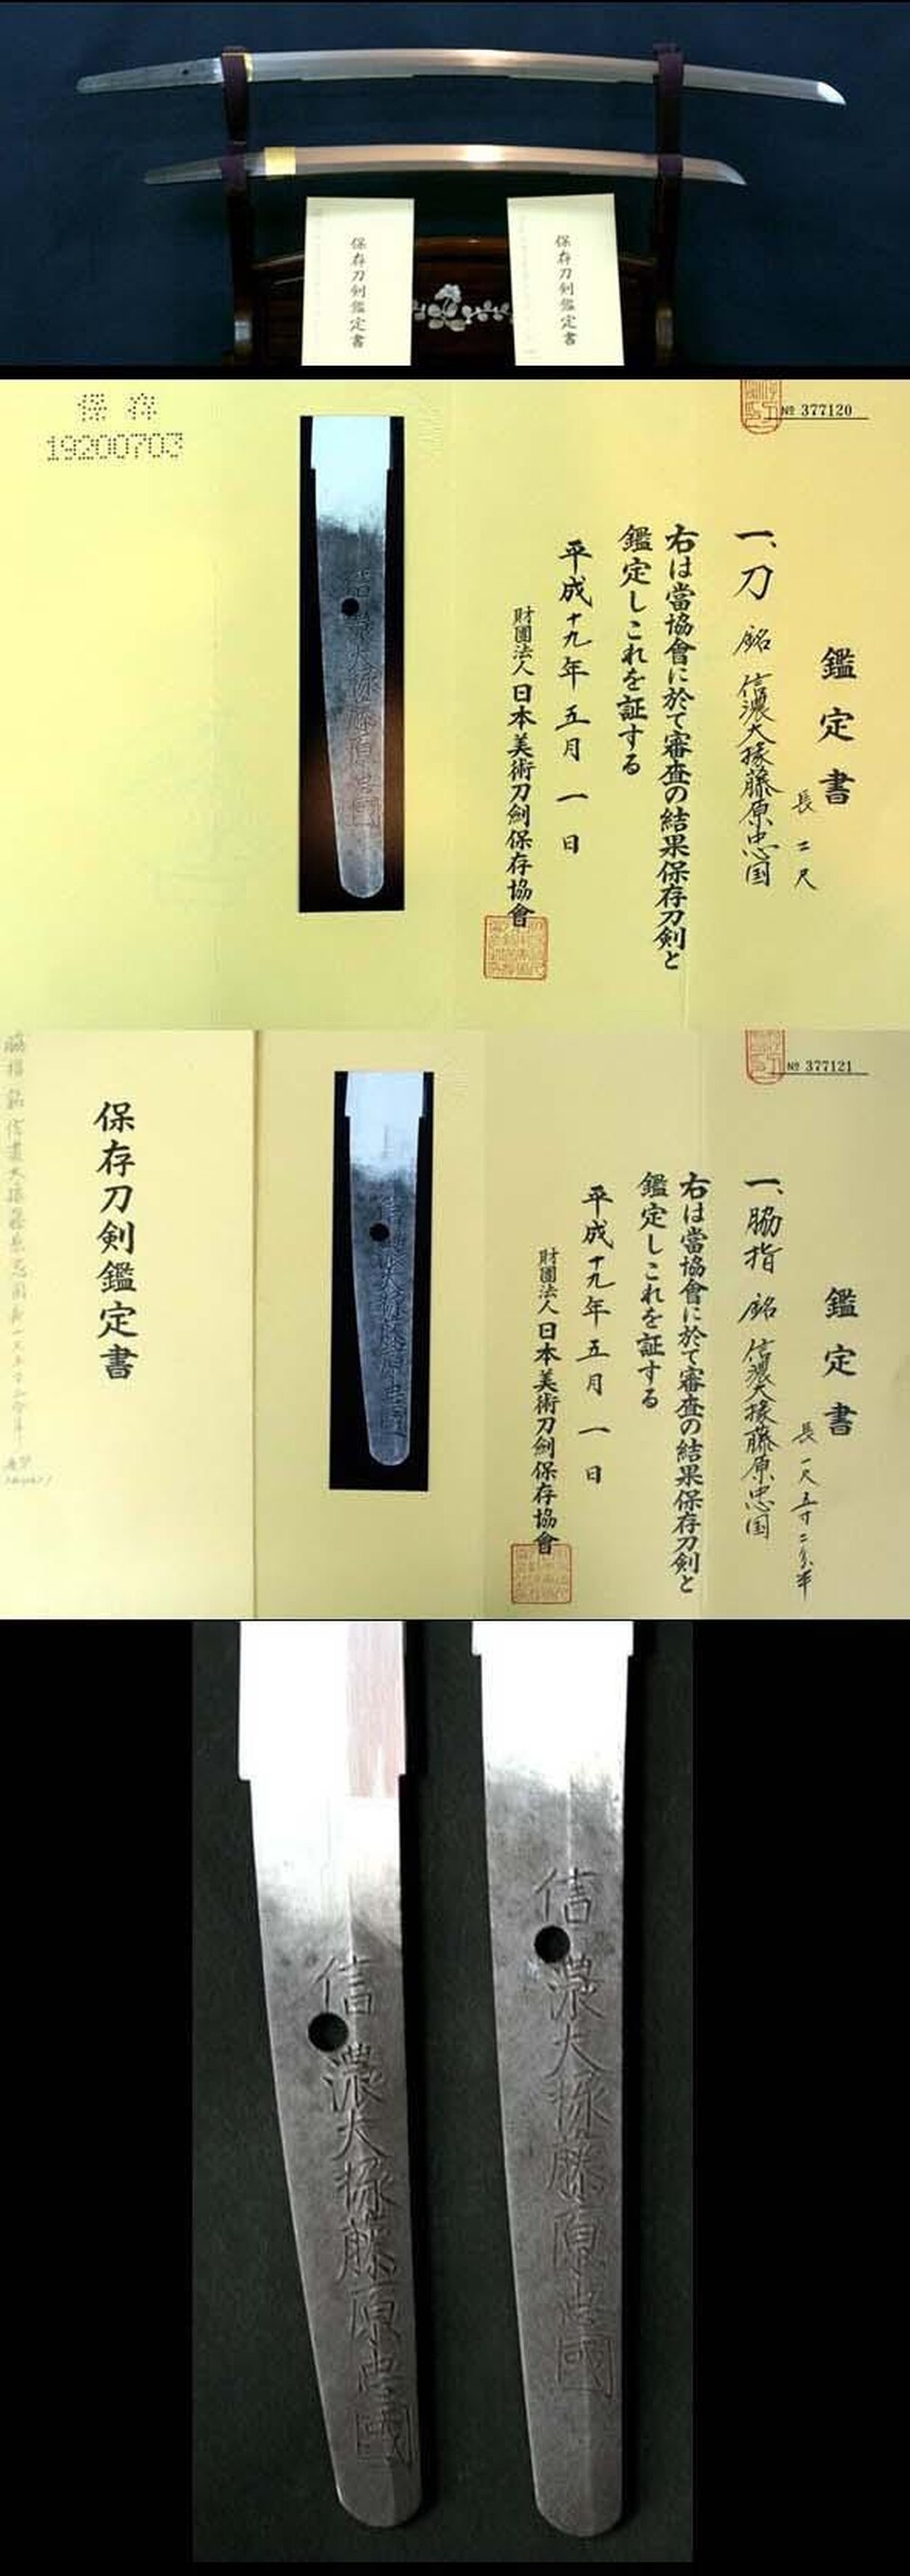 保存刀剣鑑定書
保存刀剣鑑定書
保存
19200703
№ 377120
鑑定書
長 二尺
一、刀 銘 信濃大掾藤原忠国
右は當協會に於て審査の結果保存刀剣と
鑑定しこれを証する
平成十九年五月一日
財團法人日本美術刀剣保存協會
信濃大掾藤原忠國
№ 377121
鑑定書
長 一尺五寸二分半
一、脇指 銘 信濃大掾藤原忠国
右は當協會に於て審査の結果保存刀剣と
鑑定しこれを証する
平成十九年五月一日
財團法人日本美術刀剣保存協會
信濃大掾藤原忠國
保存刀剣鑑定書
信濃大掾藤原忠國
信濃大掾藤原忠國